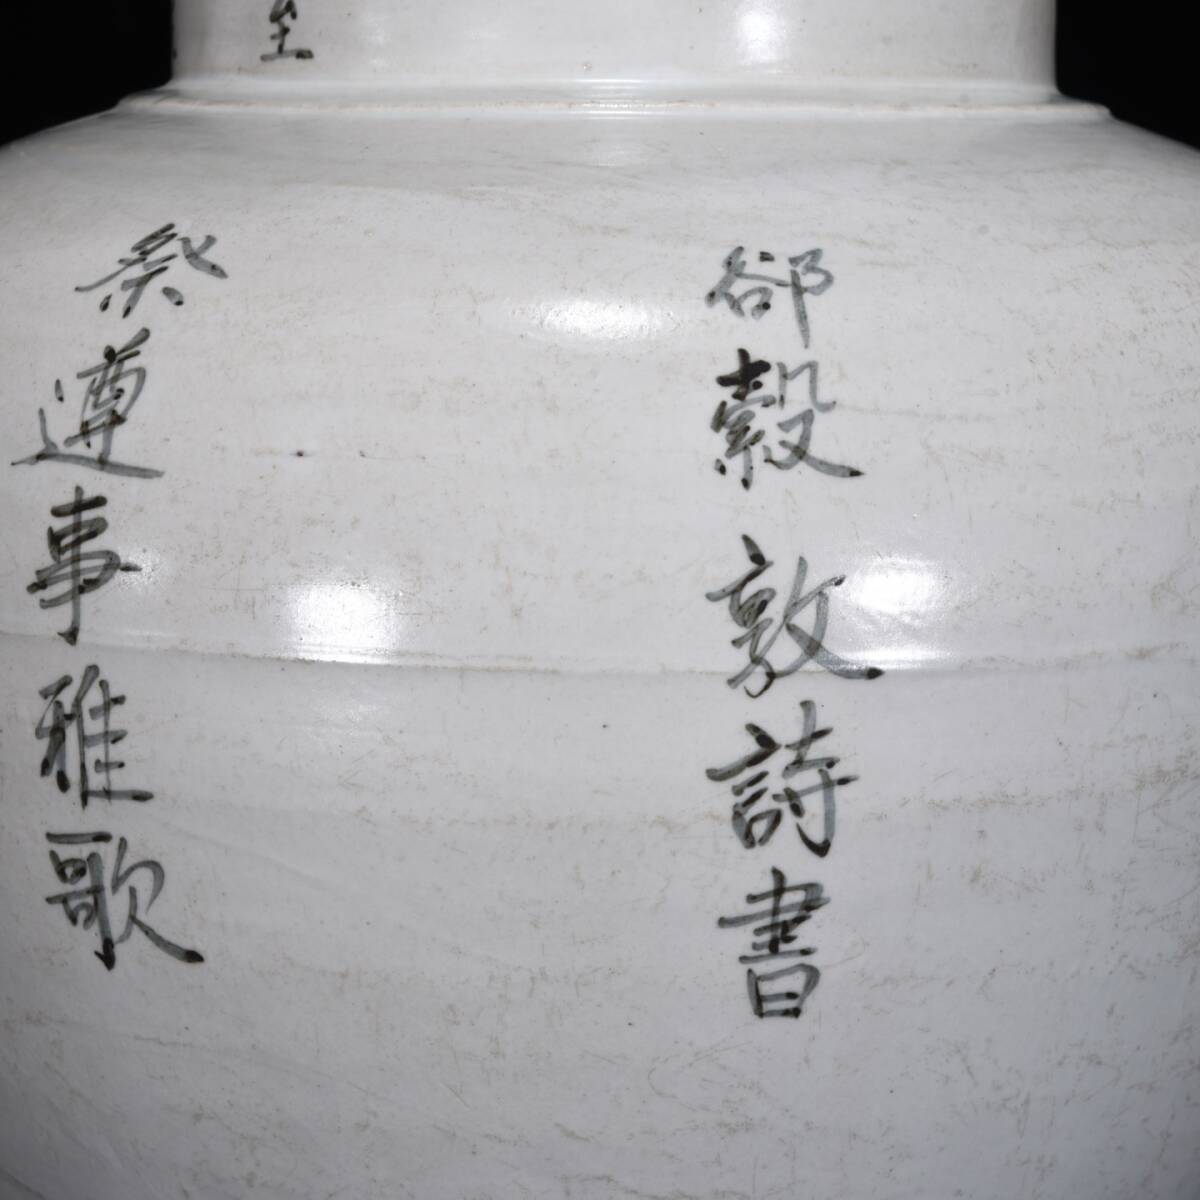 郤縠敦詩書
祭遵事雅歌